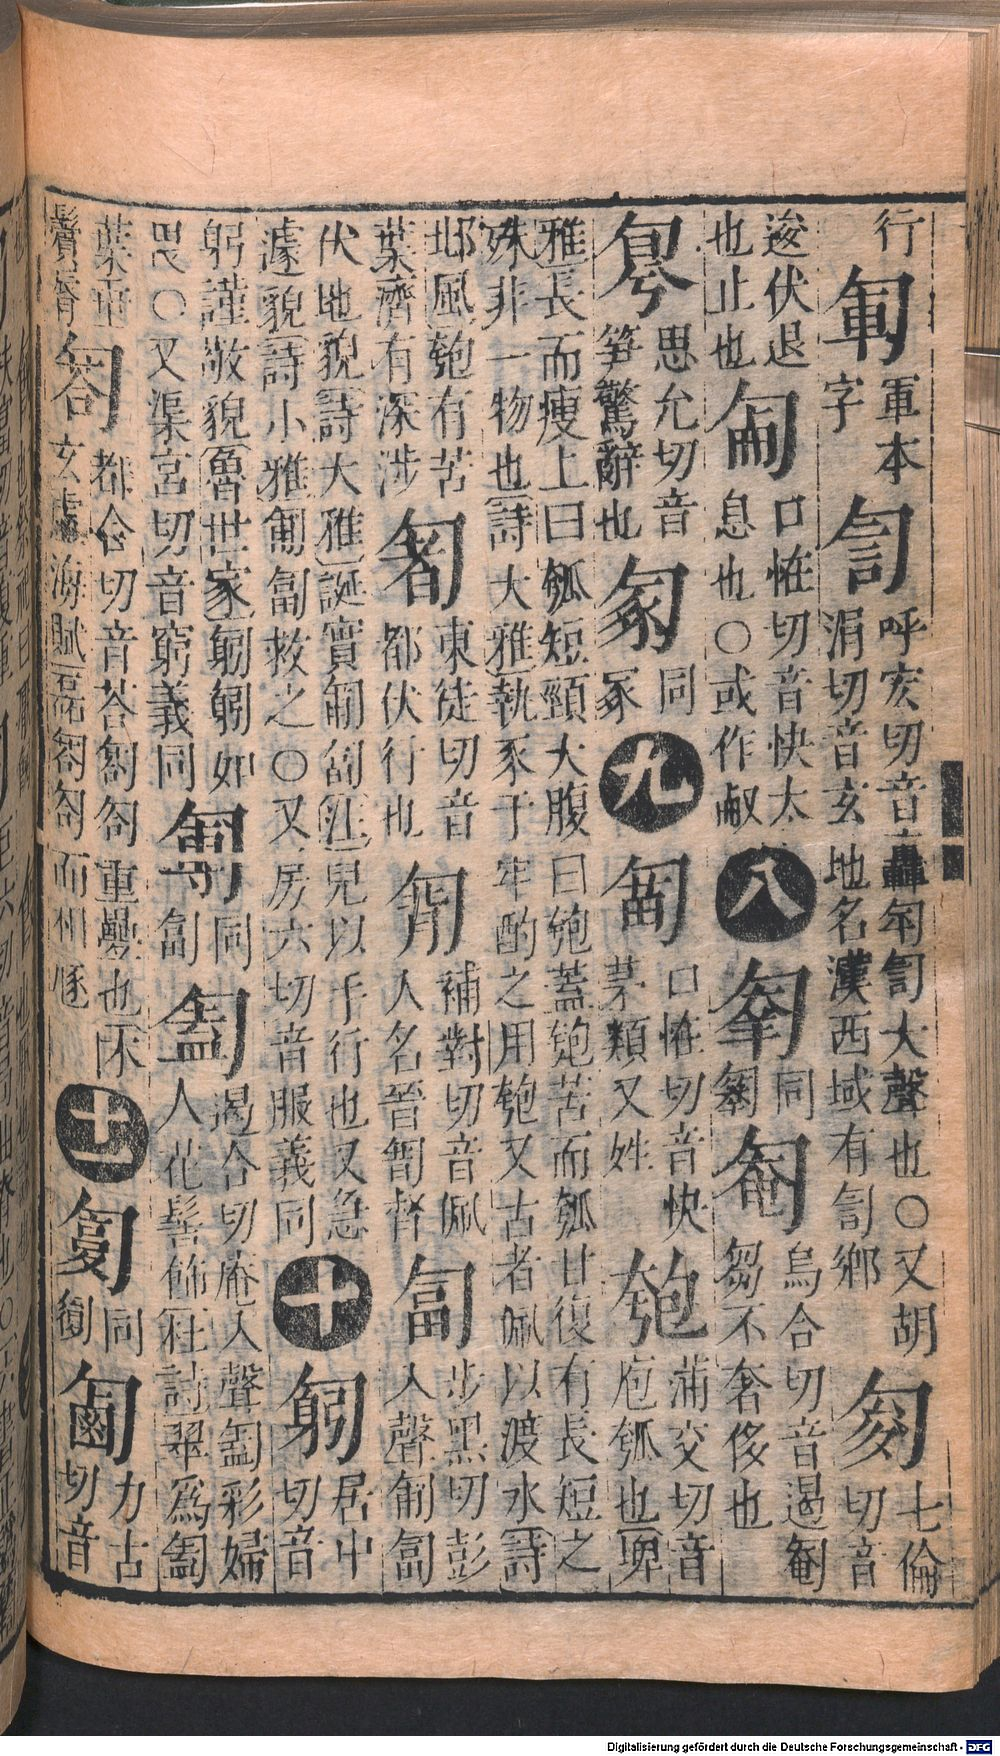 行 軍 軍本字 訇 呼宏切音轟匉訇大聲也○又胡涓切音玄地名漢西域有訇鄉 匇 七倫切音
逡伏退也止也 口恠切音快太息也○或作㕟 八 同 匎 烏合切音遏匎匌不奢侈也
思允切音笋驚辭也 同冢 九 口恠切音快茅類又姓 匏 蒲交切音庖瓠也埤
雅長而瘦上曰瓠短頸大腹曰匏蓋匏苦而瓠甘復有長短之
殊非一物也詩大雅執豕于牢酌之用匏又古者佩以渡水詩
邶風匏有苦葉濟有深涉 東徒切音都伏行也 補對切音佩人名晉匔督 匐 步黑切彭入聲匍匐
伏地貌詩大雅誕實匍匐注兒以手行也又急
遽貌詩小雅匍匐救之○又房六切音服義同 十 匑 居中切音
躬謹敬貌魯世家匑匑如畏○又渠宮切音窮義同 同匐 匎 遏合切庵入聲匎彩婦人花髻飾杜詩翠爲匎
葉垂鬢脣 匒 都合切音荅匒匌重疊也木玄虛海賦磊匒匌而相豗 十一 同 力古切音
Digitalisierung gefördert durch die Deutsche Forschungsgemeinschaft - DFG